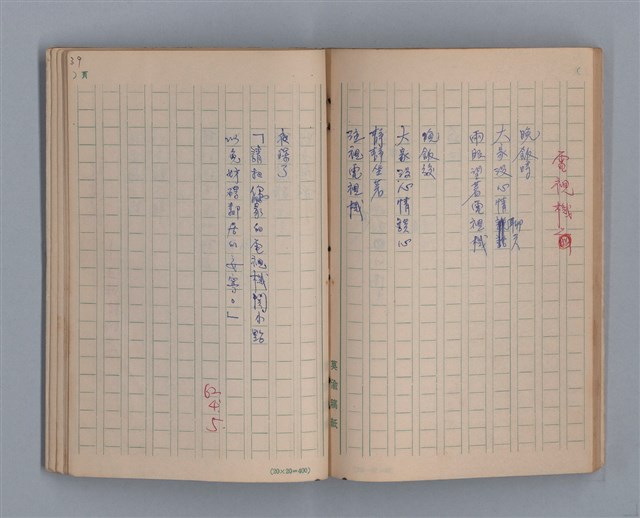 電視機
晚飯時
大家沒心情聊天
兩眼望著電視機
晚飯後
大家沒心情談心
靜靜坐著
注視電視機
夜深了
「請把貴家的電視機關小點
以免妨礙鄰居的安寧。」
62
4
5.
39
頁
(20×20=400)
稿紙